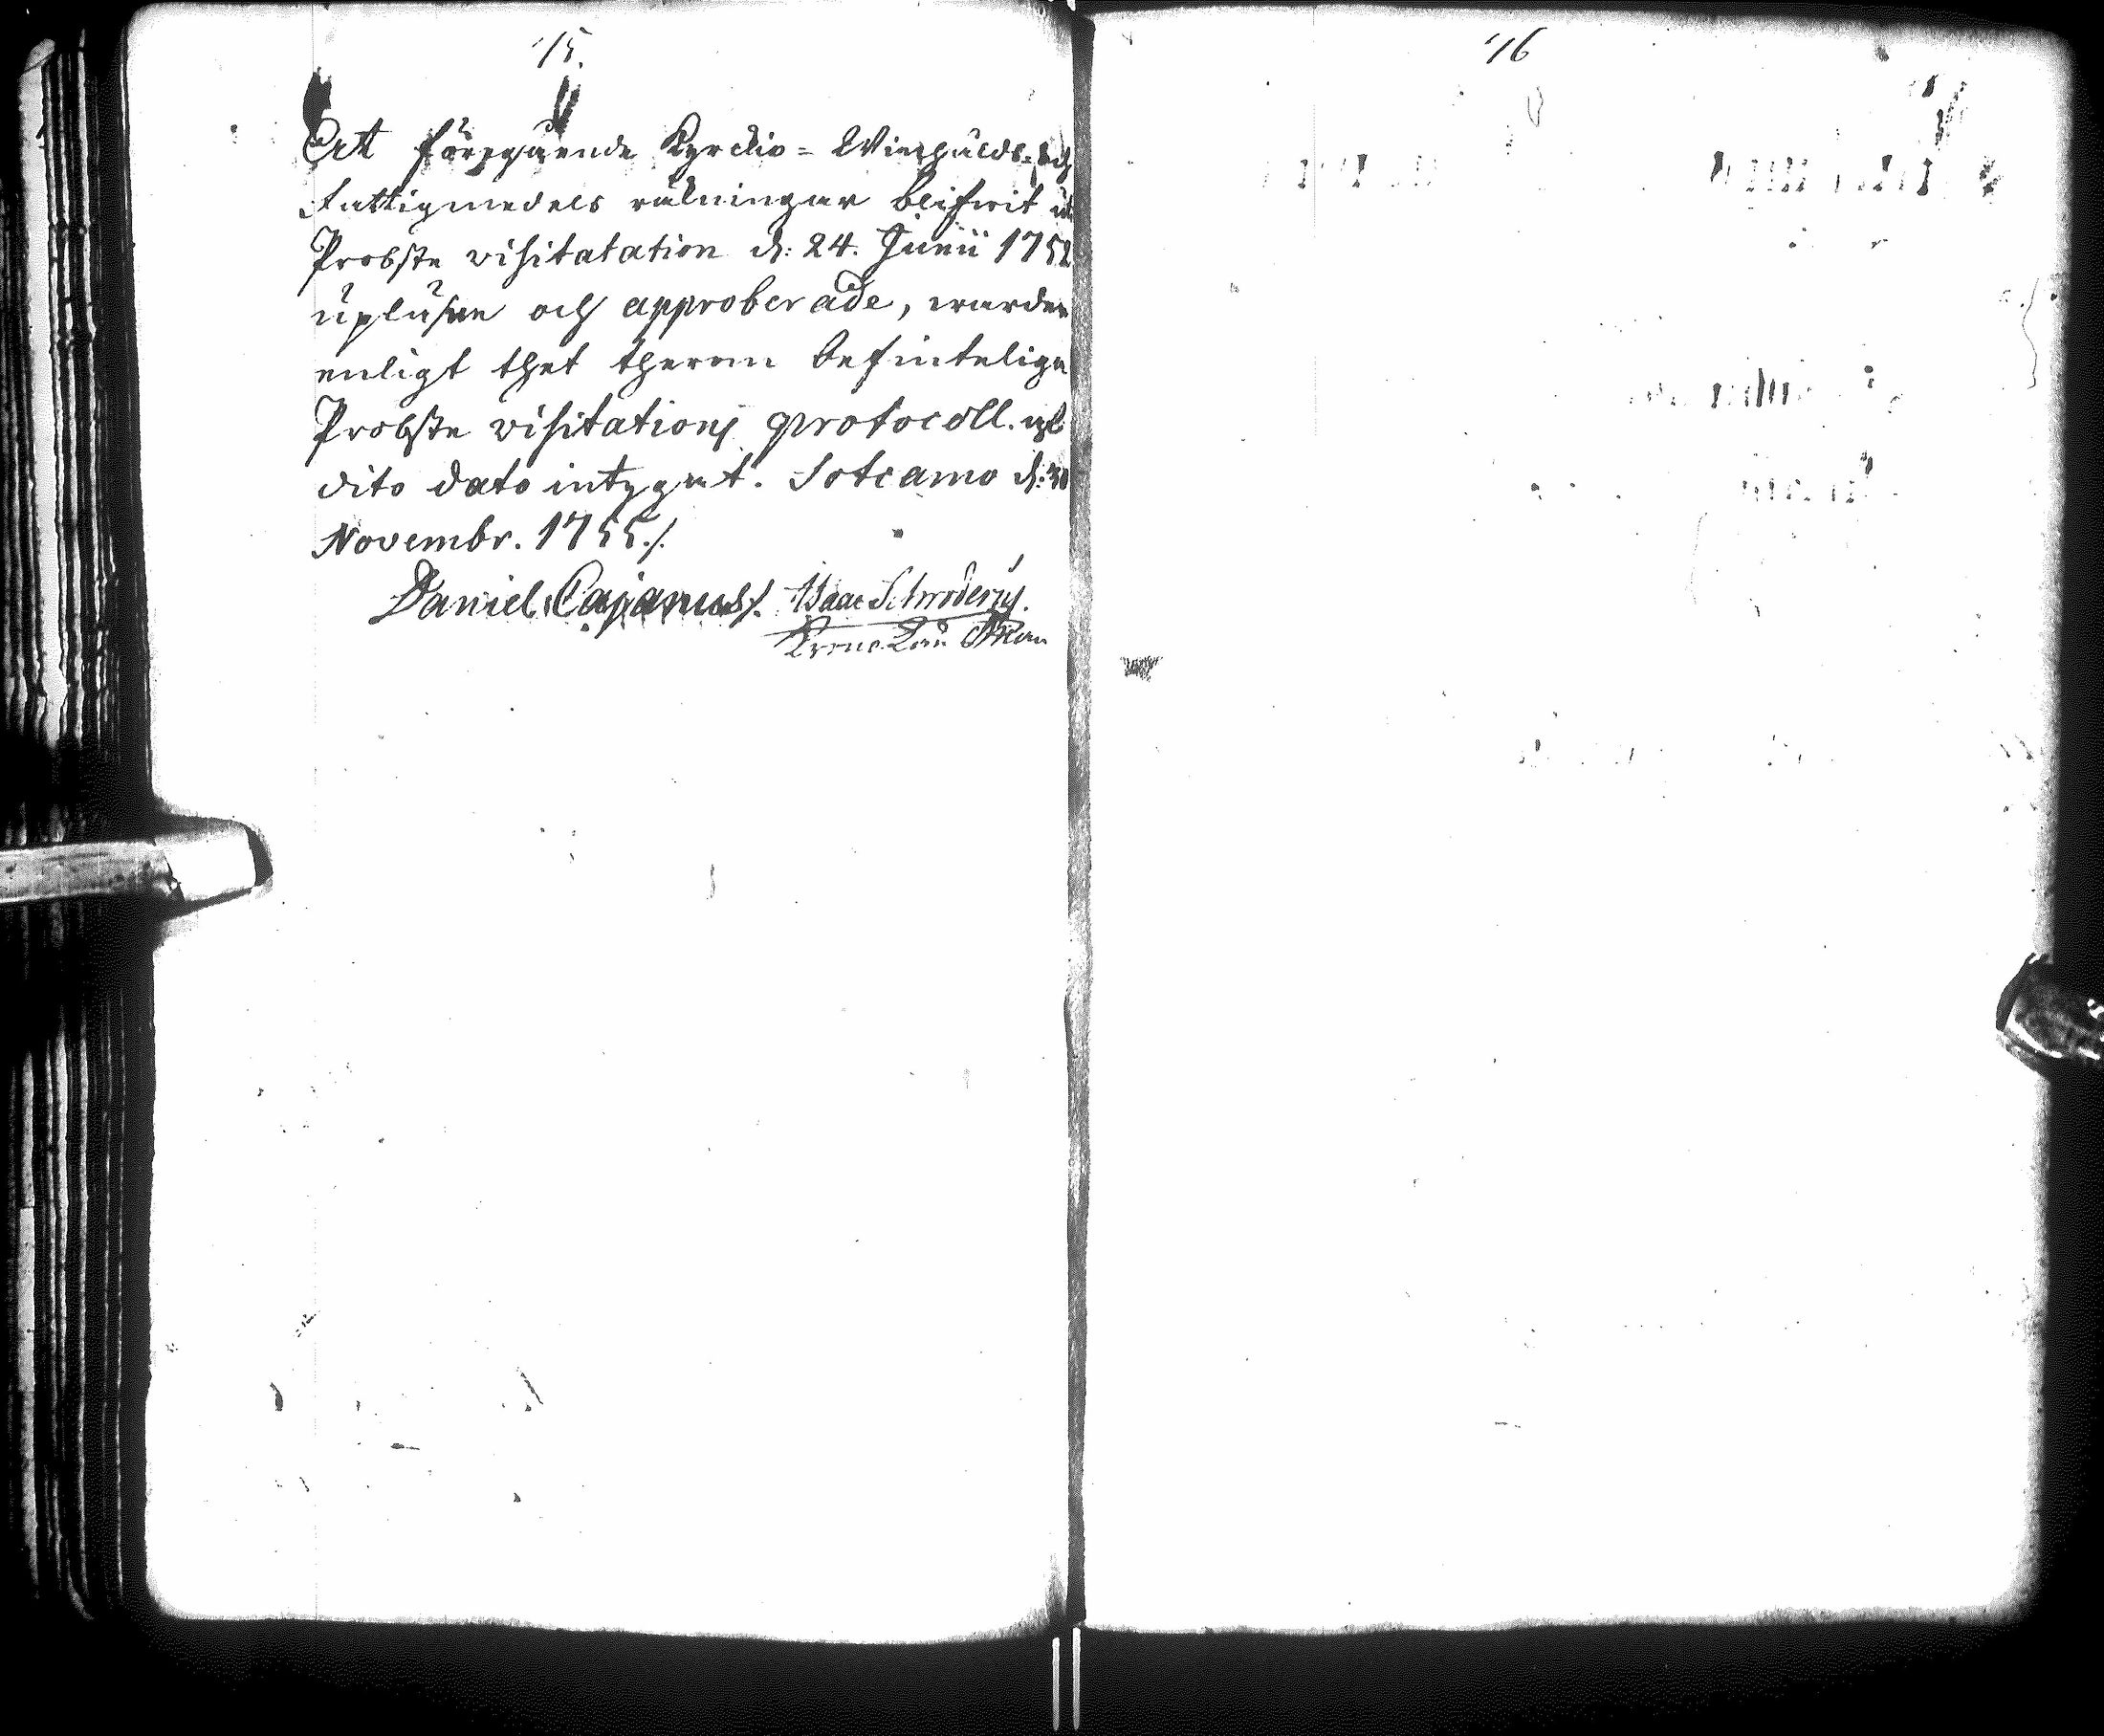 15.
At föregående Kyrckio= Winpuldz och
fattigmedels räkningar blifwit
Probste visitatation d: 24. Junii 1752
upläsne och approberade, warder
enligt thet therom befinteliga
Probste visitations protocoll.
dito dato intygat. Sotcamo d: 30
Novembr. 1755./.
Daniel Cajanus/. Isaac Schroderus.
Krono Län Man
16